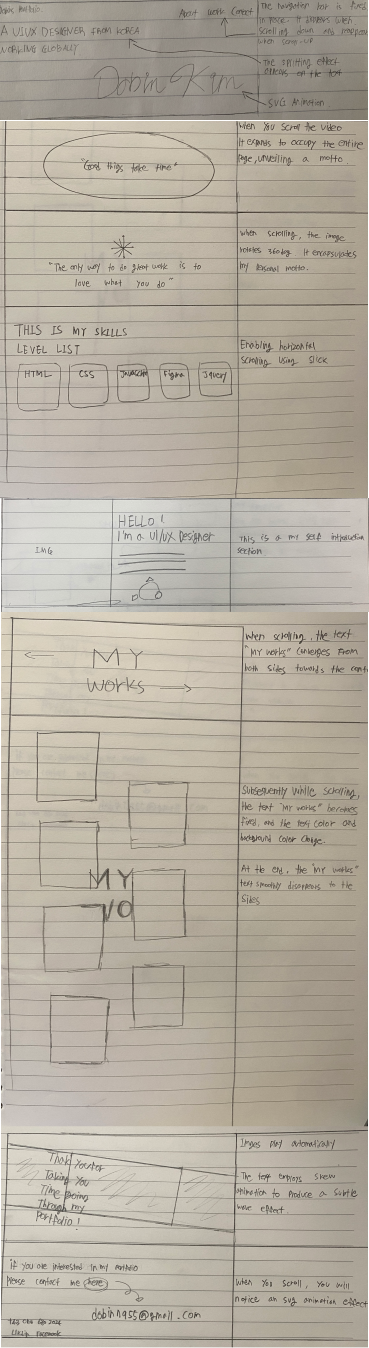 About Work Contact
The navigation bar is fixed
in place. It appears when
scrolling down and disappear
when scroll-up
A UIUX DESIGNER FROM KOREA
WORKING GLOBALLY
The splitting effect
appears on the text
Dobin Kim
SVG Animation
"Good things take time"
When you scroll the video
It expands to occupy the entire
page, unveiling a motto.
"The only way to do great work is to
love what you do"
when scrolling, the image
rotates 360deg. It encapsulates
my personal motto.
THIS IS MY SKILLS
LEVEL LIST
HTML CSS Javascript Figma Jquery
Enabling horizontal
Scrolling using Slick
IMG
HELLO!
I'm a UI/UX Designer
This is a my self introduction
section
MY
Works
when scrolling, the text
"MY works" converges from
both sides towards the cent
Subsequently while scrolling,
the text "MY works" becomes
fixed, and the text color and
background color change.
At the end, the "MY works"
text smoothly disappears to the
sides
MY
WO
Thank you for
Taking You
Time going
Through my
Portfolio!
Images play automatically
The text employs skew
animation to produce a subtle
wave effect
if you are interested in my portfolio
Please contact me here
dobin1955@gmail.com
When you scroll, you will
notice an svg animation effect
Facebook